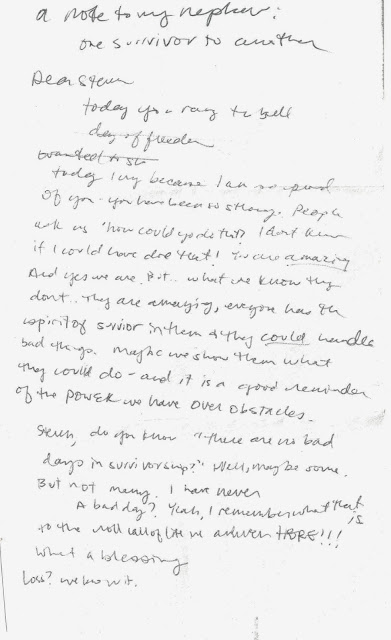 a note to my nephew:
one survivor to another
Dear Steven
today you rang the bell
day of freedom
wanted to
today I cry because I am so proud
of you - you have been so strong. People
ask us "how could you do that? I don't know
if I could have done that! You are amazing
And yes we are. But.. what we know they
don't.. they are amazing, everyone has the
spirit of survivor in them & they could handle
bad things. Maybe we show them what
they could do - and it is a good reminder
of the POWER we have over obstacles.
Steven, do you know "there are no bad
days in survivorship?" Well, maybe some.
But not many. I have never
A bad day? Yeah, I remember what that is
to the roll call of life we answer HERE!!!
what a blessing
Loss? we know it.